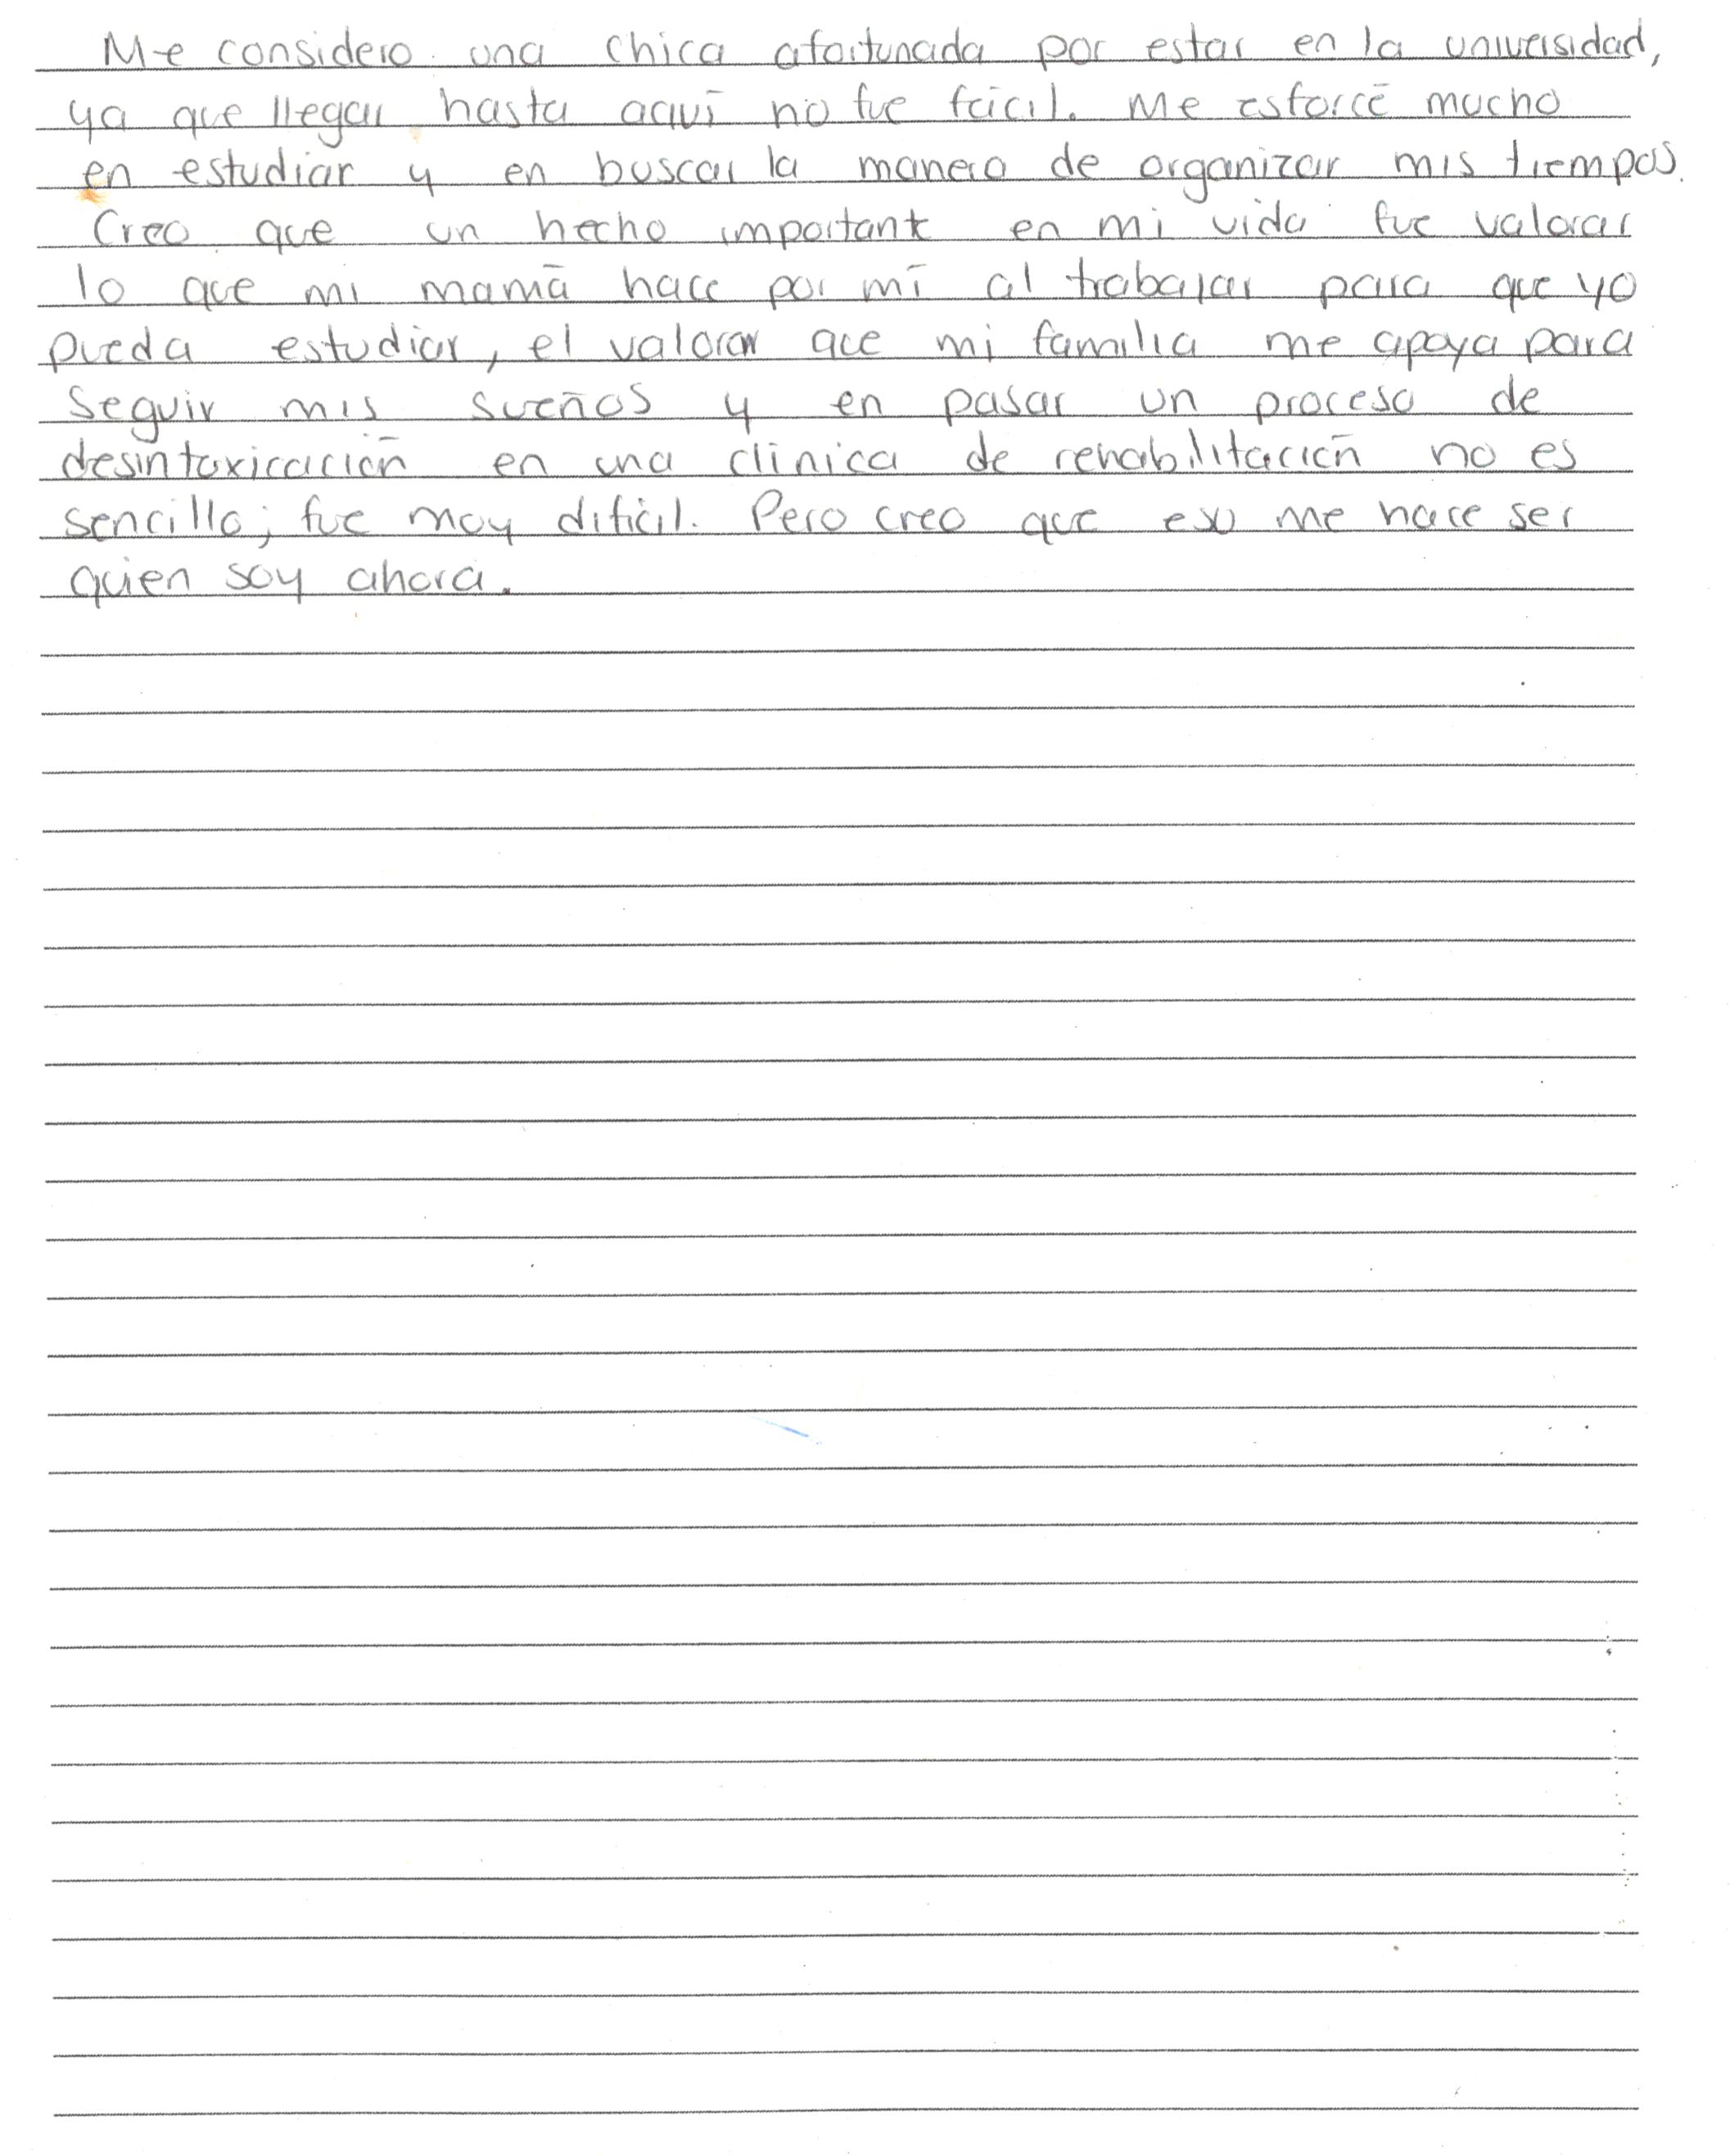 Me considero una chica afortunada por estar en la universidad,
ya que llegar hasta aquí no fue fácil. Me esforcé mucho
en estudiar y en buscar la manera de organizar mis tiempos.
Creo que un hecho important en mi vida fue valorar
lo que mi mamá hace por mí al trabajar para que yo
pueda estudiar, el valorar que mi familia me apoya para
seguir mis sueños y en pasar un proceso de
desintoxicación en una clínica de rehabilitación no es
sencillo; fue muy difícil. Pero creo que eso me hace ser
quien soy ahora.